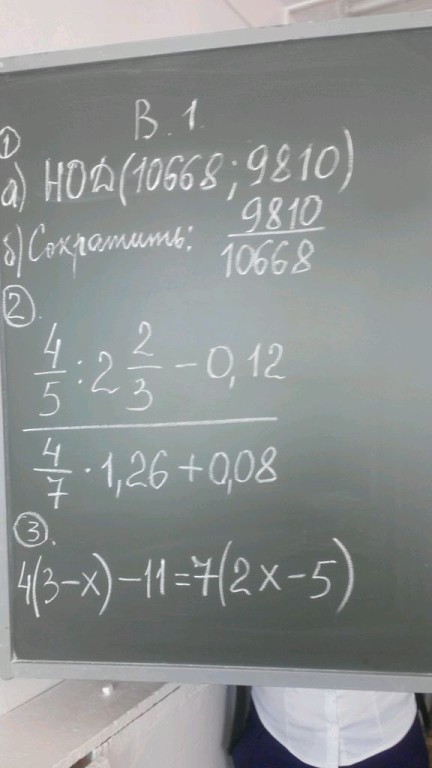 В.1.
①
а) НОД(10668; 9810)
б) Сократить: 9810/10668
②.
4/5 : 2 2/3 − 0,12
4/7 · 1,26 + 0,08
③.
4(3−x)−11=7(2x−5)